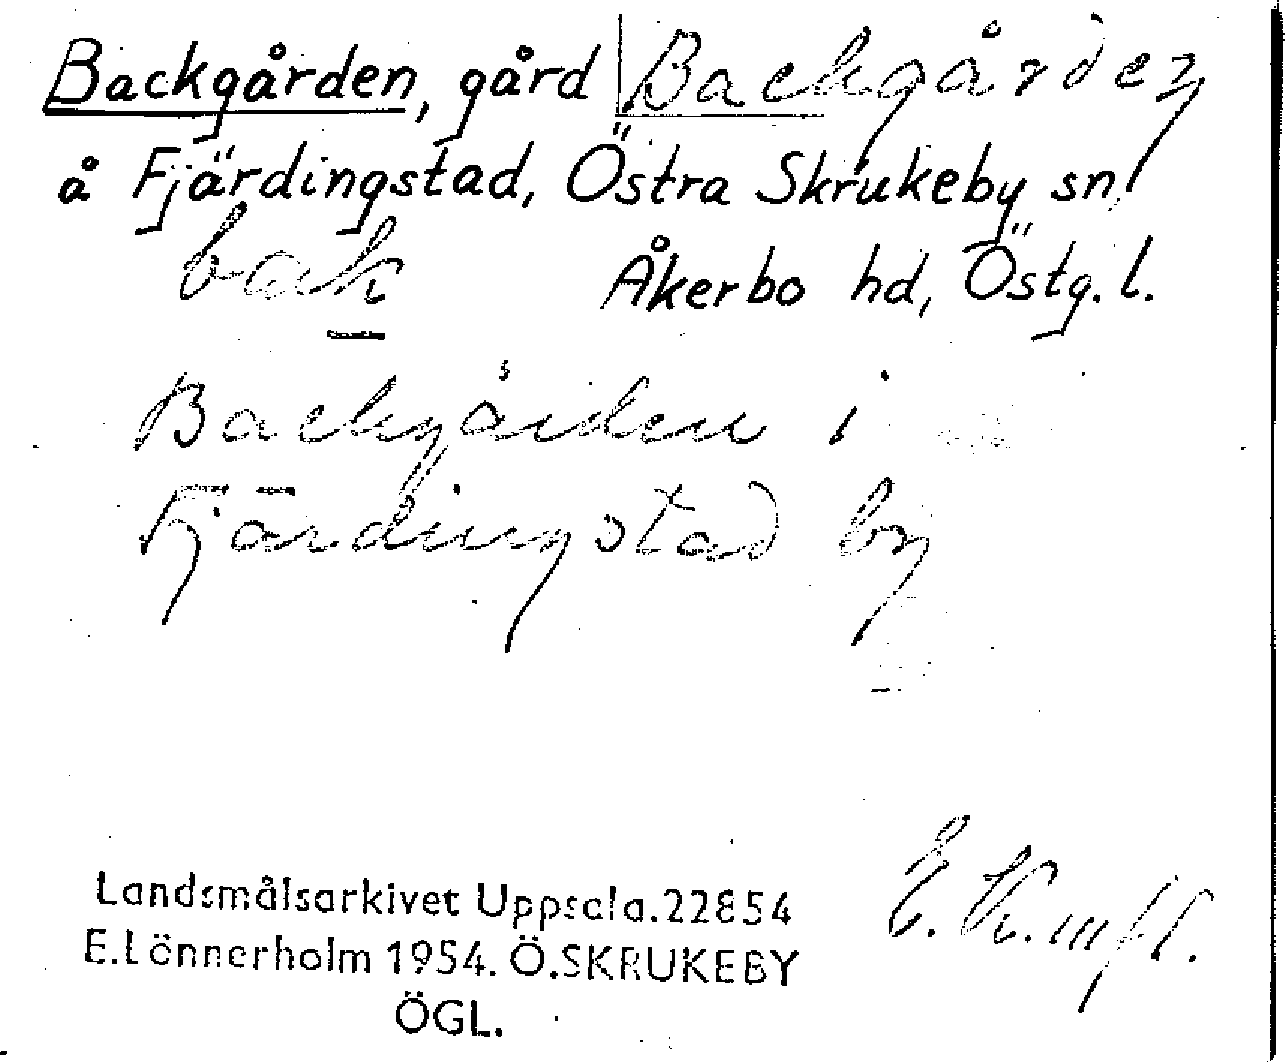 Backgården, gård Backgården
å Fjärdingstad, Östra Skrukeby sn,
Åkerbo hd, Östg. l.
Backgården i
Fjärdingstad by
Landsmålsarkivet Uppsala. 22854
E. Lönnerholm 1954. Ö. SKRUKEBY
ÖGL.